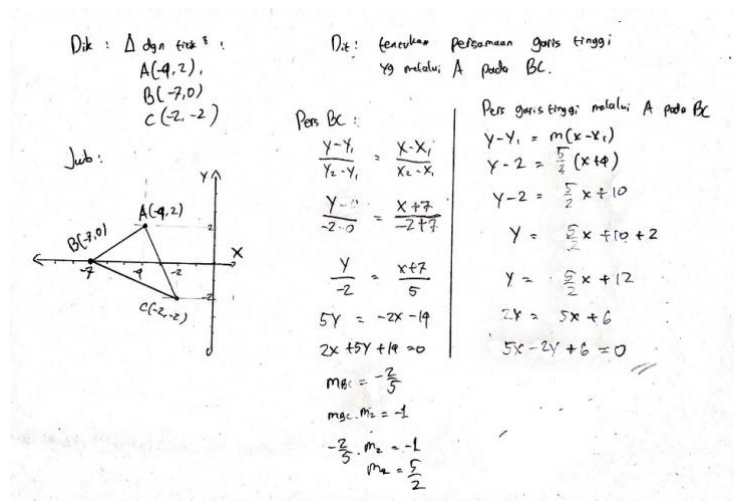 Dik : Δ dgn titik² :
A(-4,2),
B(-7,0)
C(-2,-2)
Jwb :
Y
A(-4,2)
B(-7,0)
X
-7
-4
-2
2
-2
C(-2,-2)
Dit : tentukan persamaan garis tinggi
yg melalui A pada BC.
Pers BC :
Y-Y₁ / Y₂-Y₁ = X-X₁ / X₂-X₁
Y-0 / -2-0 = X+7 / -2+7
Y / -2 = X+7 / 5
5Y = -2X -14
2X +5Y +14 =0
mBC = -2/5
mBC . m₂ = -1
-2/5 . m₂ = -1
m₂ = 5/2
Pers garis tinggi melalui A pada BC
Y-Y₁ = m(X-X₁)
Y-2 = 5/2 (X+4)
Y-2 = 5/2 X+10
Y = 5/2 X +10 +2
Y = 5/2 X +12
2Y = 5X +6
5X-2Y +6 =0